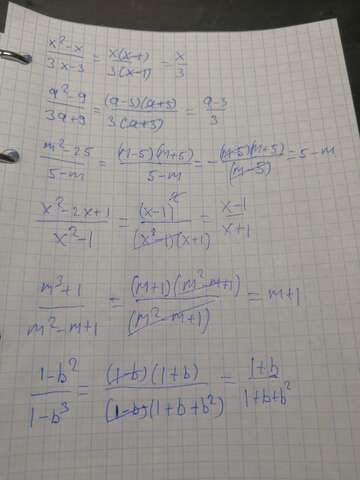 x²-x / 3x-3 = x(x-1) / 3(x-1) = x / 3
a²-9 / 3a+9 = (a-3)(a+3) / 3(a+3) = a-3 / 3
m²-25 / 5-m = (m-5)(m+5) / 5-m = -(m-5)(m+5) / (m-5) = 5-m
x²-2x+1 / x²-1 = (x-1)² / (x²-1)(x+1) = x-1 / x+1
m³+1 / m²-m+1 = (m+1)(m²-m+1) / (m²-m+1) = m+1
1-b² / 1-b³ = (1-b)(1+b) / (1-b)(1+b+b²) = 1+b / 1+b+b²